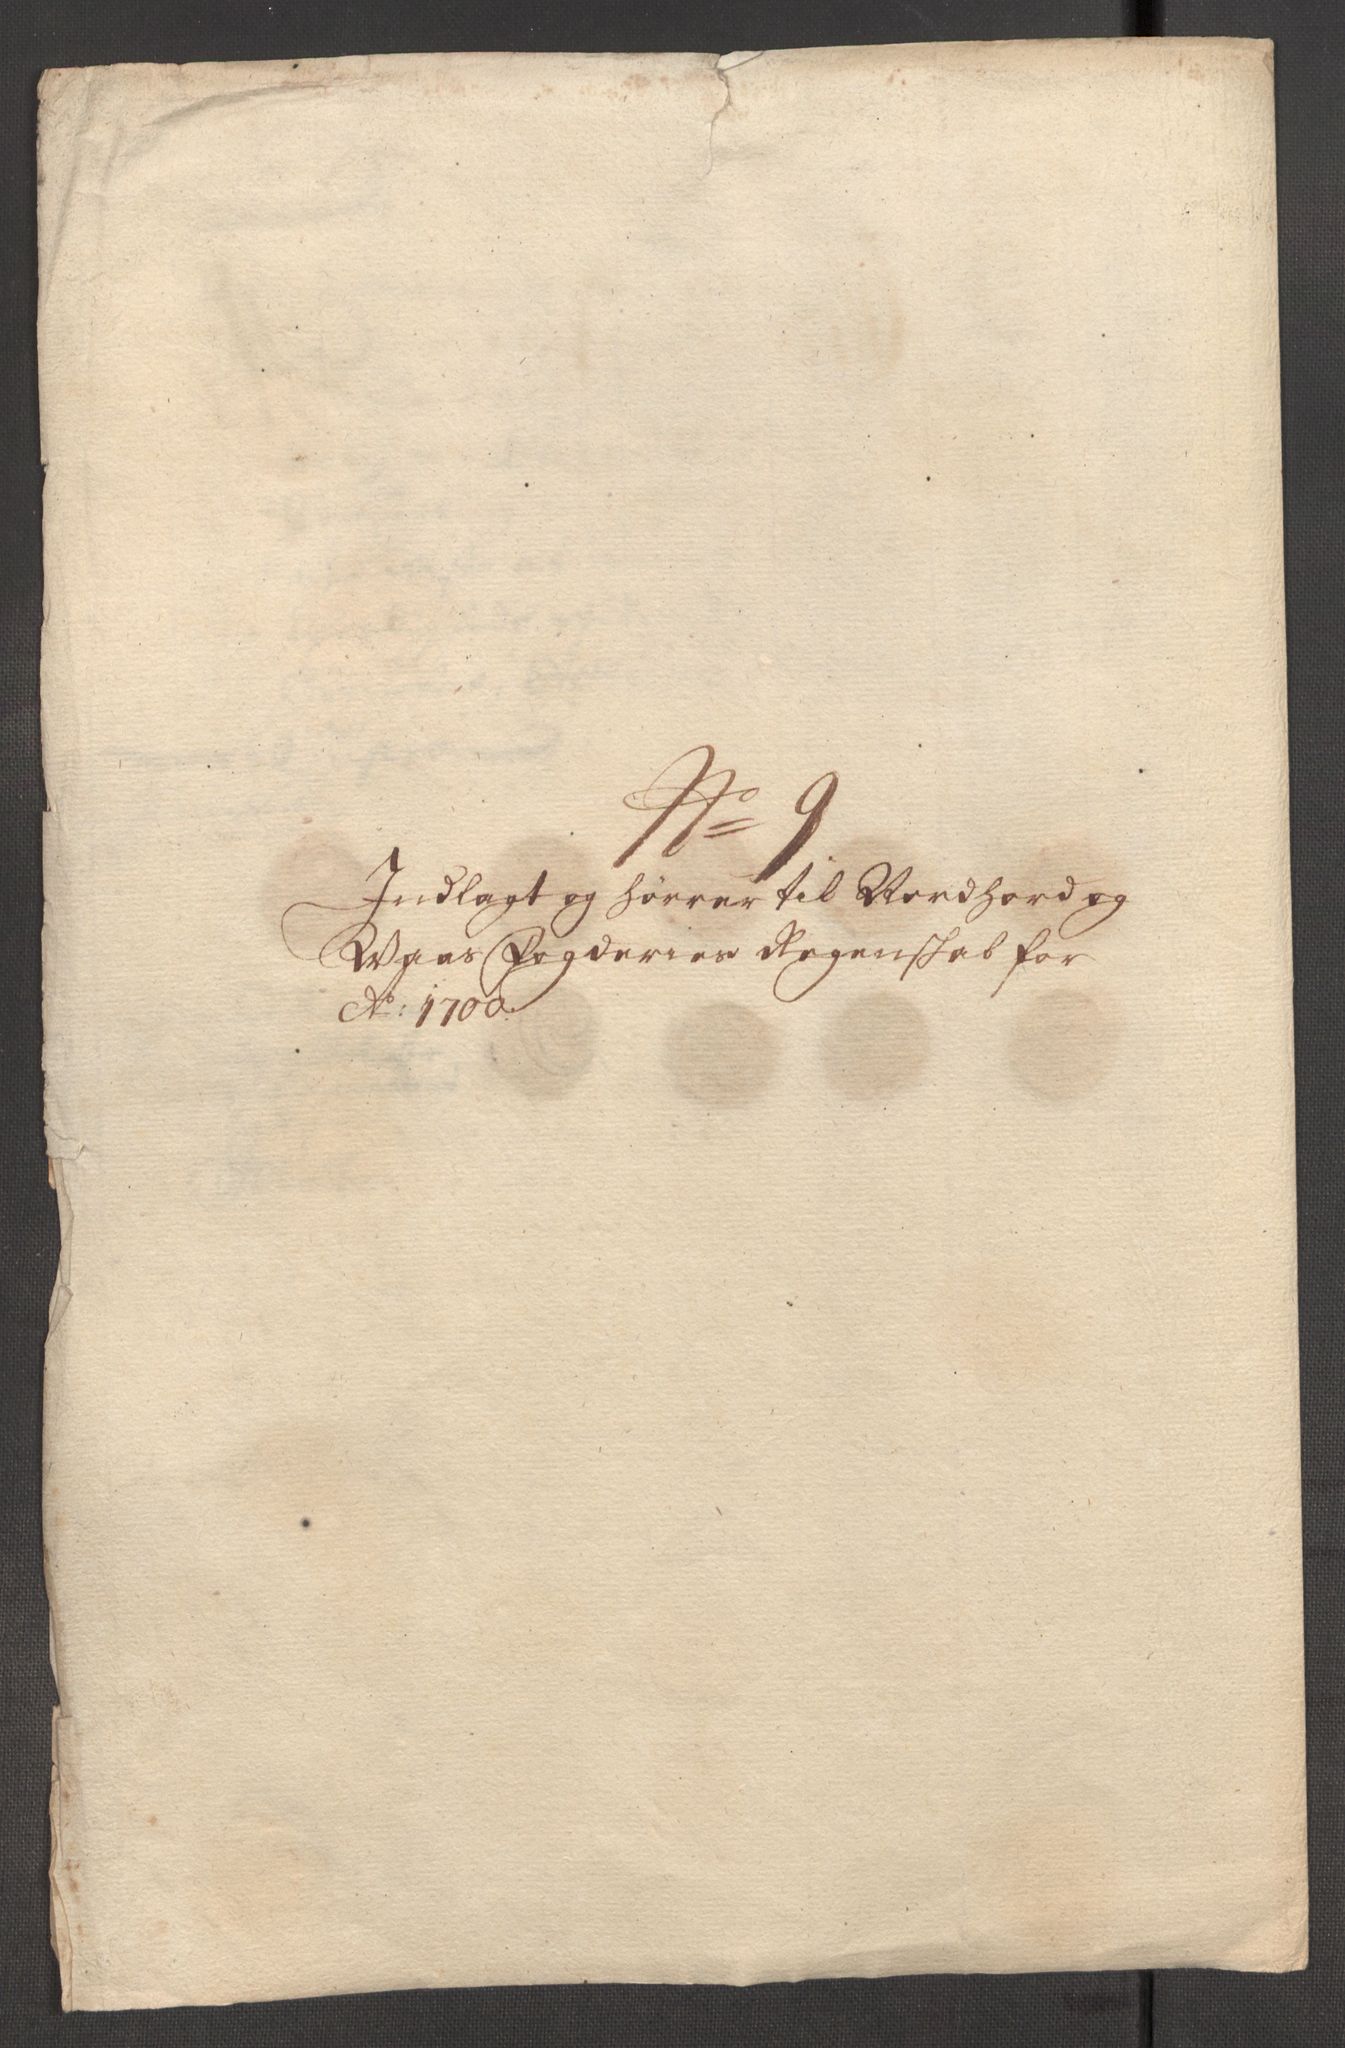 No 9
Indlagt og hörrer til Nordhord og
Waas Fogderies Regenskab for
Ao: 1700.